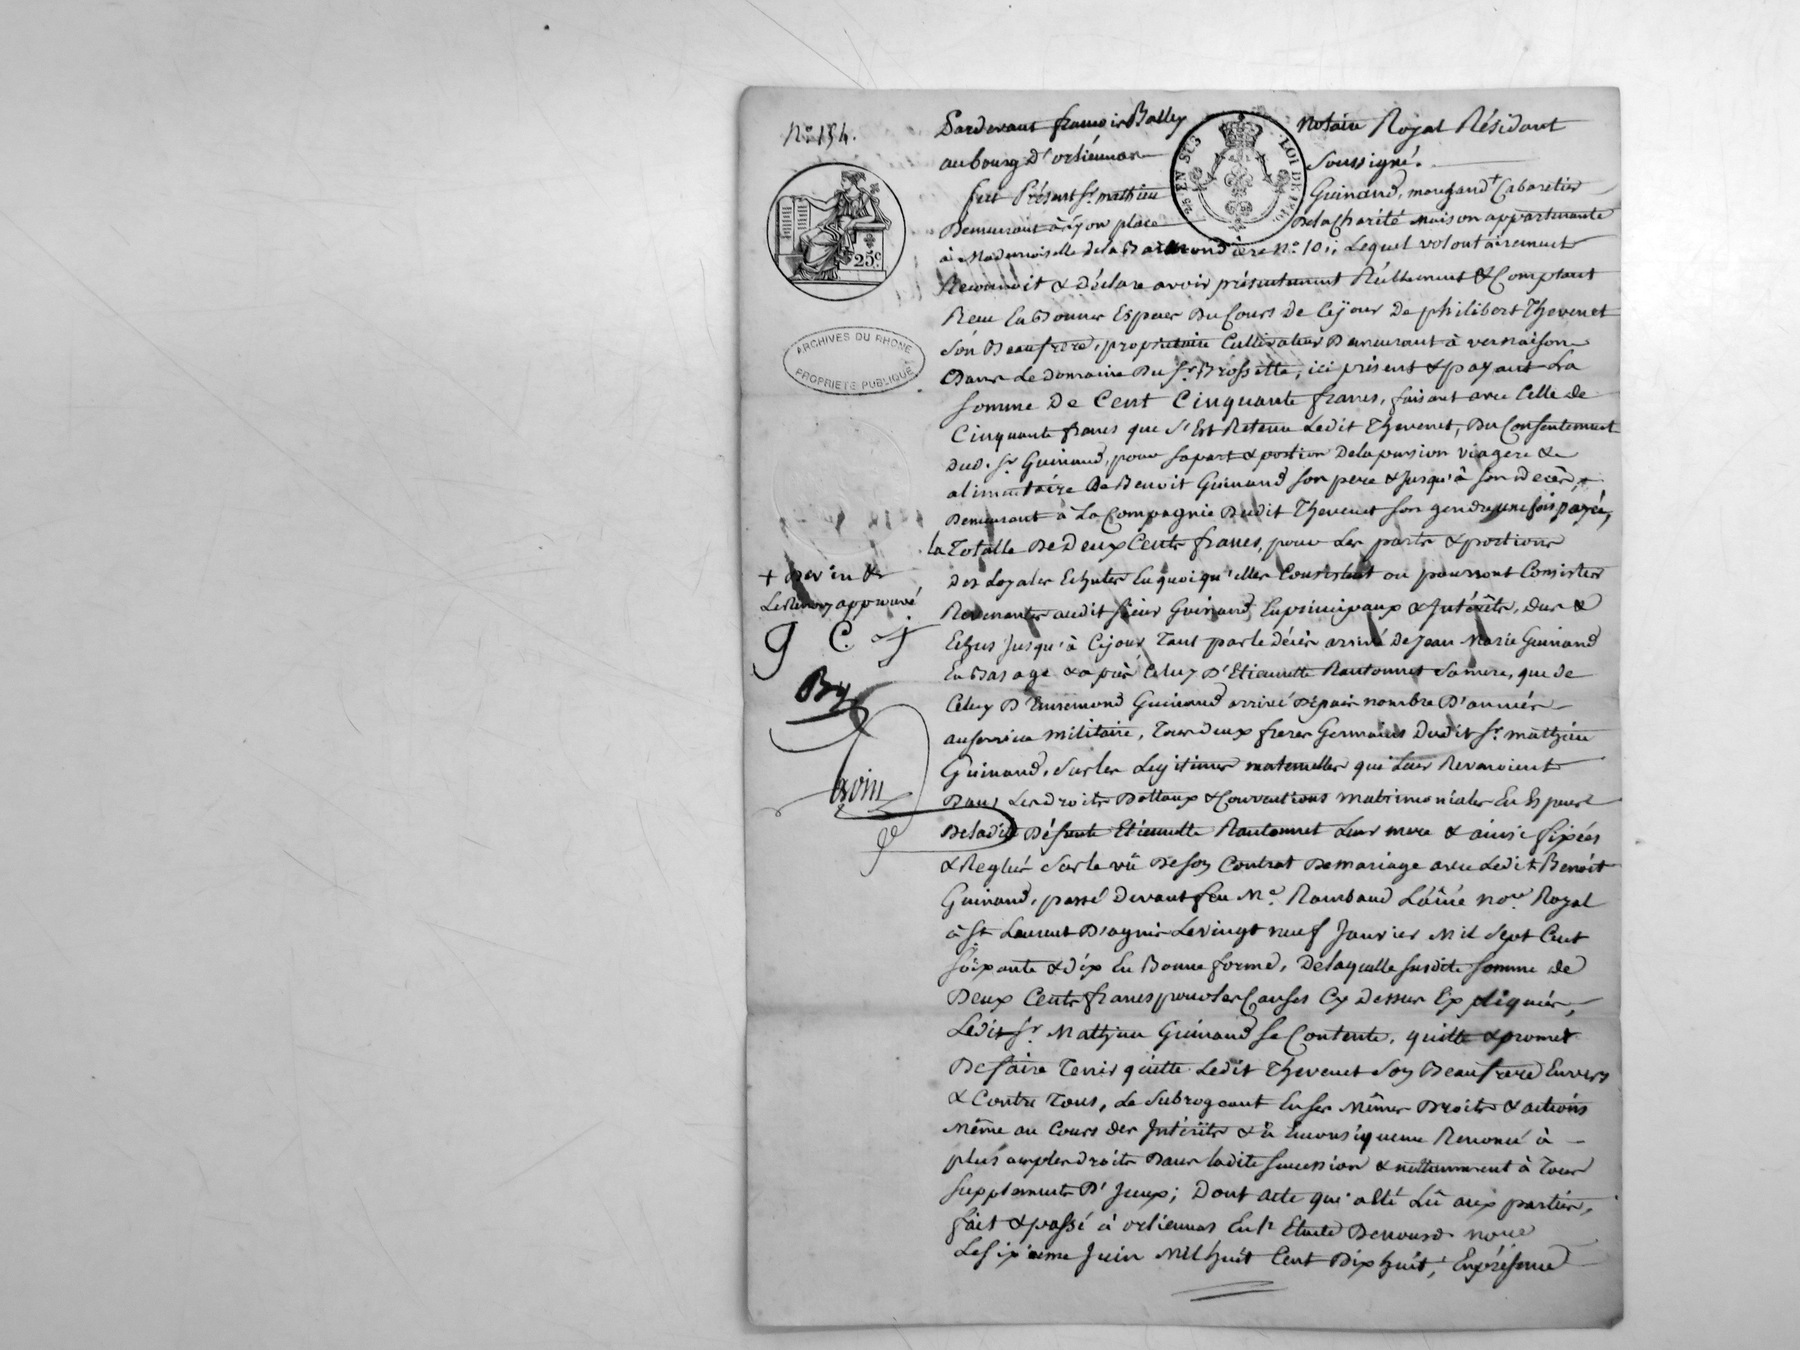 N.º 154.
Pardevant françois Balley notaire Royal Résidant
au bourg d'orliénnas soussigné.
fut Présent S.r mathieu Guinand, marchand + Cabaretier
Demeurant à Lyon place De la Charité maison appartenante
à Mademoiselle de la Barmondière N.º 10;, Lequel volontairement
Reconnoit & déclare avoir présentement Réellement & Comptant
Reçu En Bonnes Espèces Du Cours de Ce jour De philibert Thevenet
son Beaufrere, propriétaire Cultivateur Demeurant à vernaison
Dans Le domaine Du S.r Brossette, ici présent & payant La
Somme De Cent Cinquante francs, faisant avec Celle de
Cinquante francs que S'Est Retenu Ledit Thevenet, Du Consentement
dud. S.r Guinand, pour sa part & portion De la pension viagere &
alimentaire De Benoit Guinand son pere & Jusqu'à son décès,
Demeurant à La Compagnie Dudit Thevenet son gendre une fois payée,
la Totalle De Deux Cents francs, pour Les parts & portions
des Loyales Echutes En quoi qu'elles Consistent ou pourront Consister
Revenantes audit sieur Guinand En principaux & Intérêts, dus &
Echus Jusqu'à Ce jour, Tant par le décès arrivé de Jean Marie Guinand
En Bas age & après Celuy D'Etiennette Rantonnet Sa mere, que de
Celuy D'Ennemond Guinand arrivé Depuis nombre D'années
au service militaire, Tous deux freres Germains Dudit S.r mathieu
Guinand, sur les Legitimes maternelles qui Leur Revenoient
Dans Les droits Dottaux & Conventions matrimoniales En Especes
De ladite Défunte Etiennette Rantonnet Leur mere & ainsi fixées
& Reglées sur le vû De son Contrat De mariage avec Ledit Benoit
Guinand, passé devant feu M.e Rambaud L'aîné no.re Royal
à St Laurent D'agnis Le vingt neuf Janvier Mil Sept Cent
Soixante & dix En Bonne forme, De laquelle susdite somme de
Deux Cents francs pour les Causes Cy dessus Expliquées,
Ledit S.r Mathieu Guinand se Contente, quitte & promet
De faire Tenir quitte Ledit Thevenet Son Beaufrere Envers
& Contre Tous, Le Subrogeant En ses Mêmes Droits & actions
Même au Cours des Intérêts & à Renoncé à
plus amples droits Dans ladite succession & nottamment à Tous
supplements D'Iceux; Dont acte qui a Eté Lû aux parties,
fait & passé à orliennas En l'Etude De nousd. no.re
Le sixieme Juin Mil huit Cent Dix huit, En présence
+ De vin &
Le Renvoy approuvé
g C. J
By
25 EN SUS
LOI DE 1816
25c
ARCHIVES DU RHONE
PROPRIETE PUBLIQUE